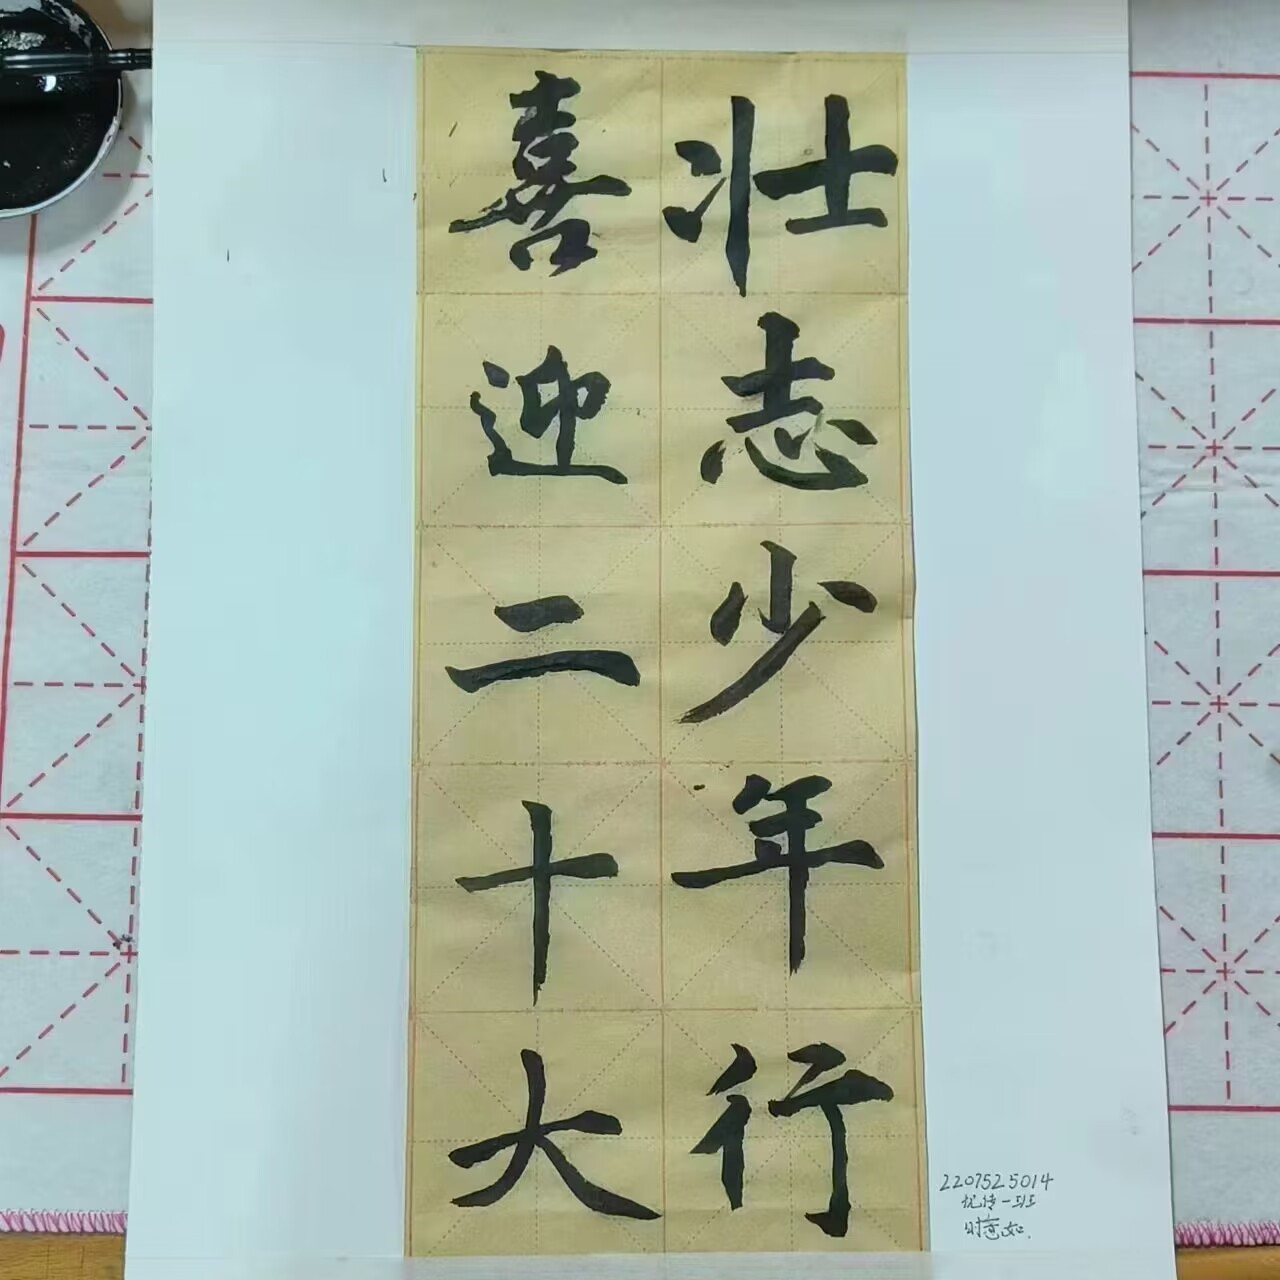 壮志少年行
喜迎二十大
2207525014
优传一班
时意如